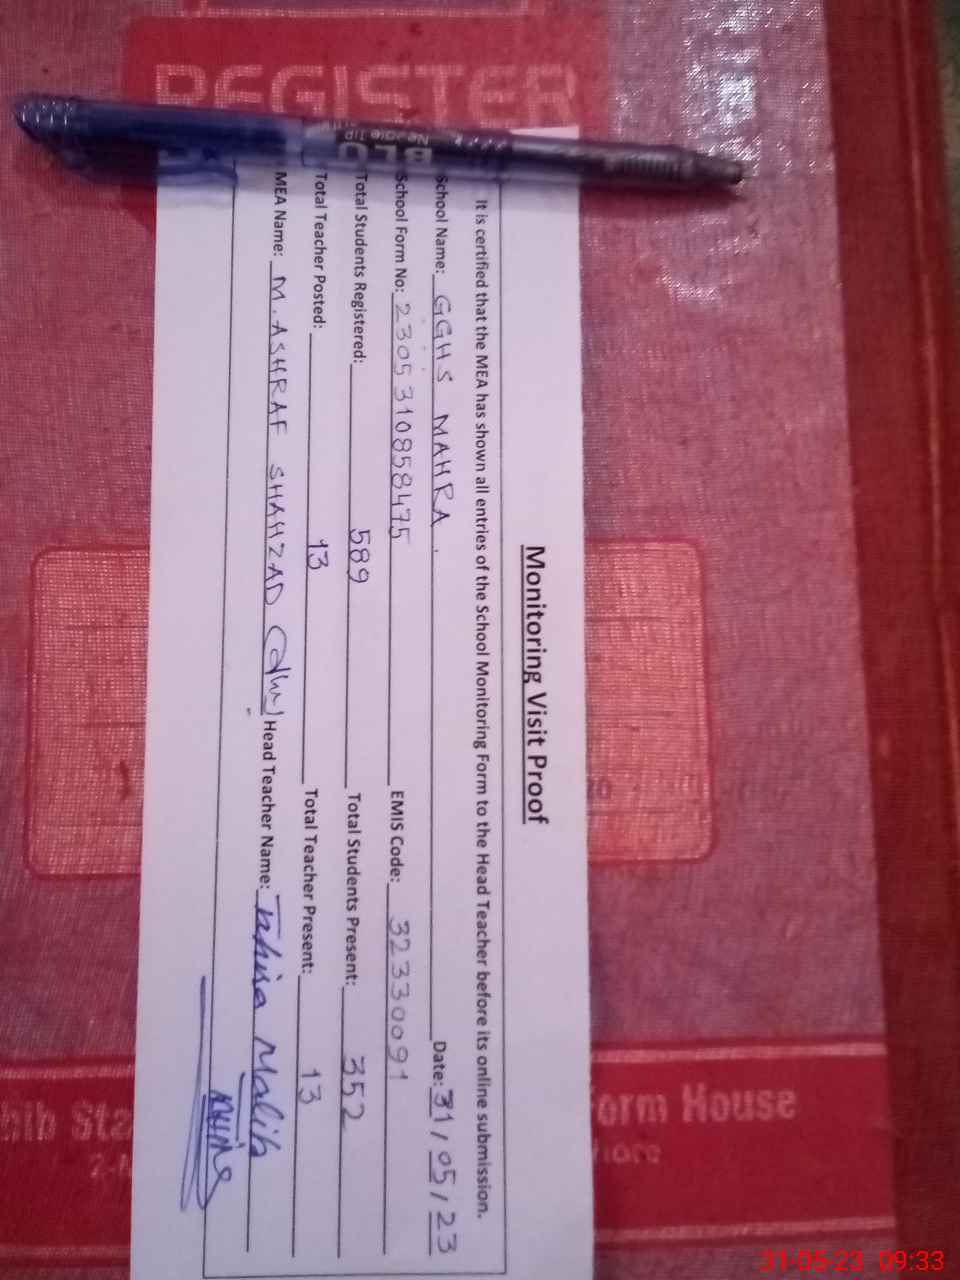 REGISTER
Monitoring Visit Proof
It is certified that the MEA has shown all entries of the School Monitoring Form to the Head Teacher before its online submission.
School Name: GGHS MAHRA. Date: 31/05/23
School Form No: 2305310858475 EMIS Code: 32330091
Total Students Registered: 589 Total Students Present: 352
Total Teacher Posted: 13 Total Teacher Present: 13
MEA Name: M. ASHRAF SHAHZAD Head Teacher Name: Tahira Malik
orm House
31-05-23 09:33